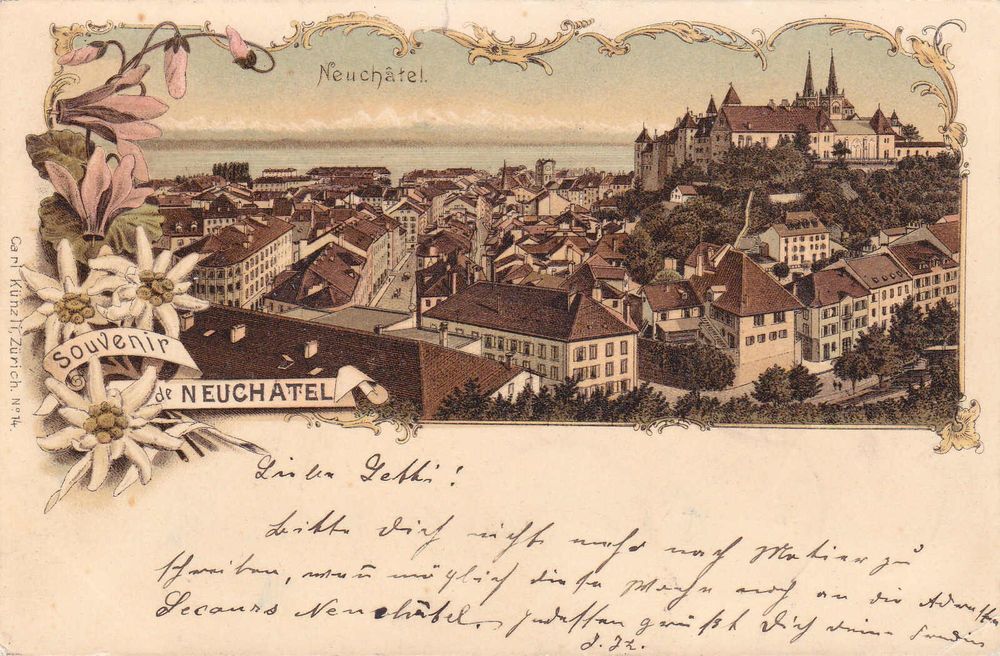 Neuchâtel.
Souvenir
de NEUCHÂTEL
Carl Künzli, Zürich. No 14.
Liebe Setti!
bitte Dich nicht mehr nach Motier zu
schreiben, wenn möglich diese Woche noch an die Adresse
Secours Neuchâtel. Indessen grüßt Dich deine